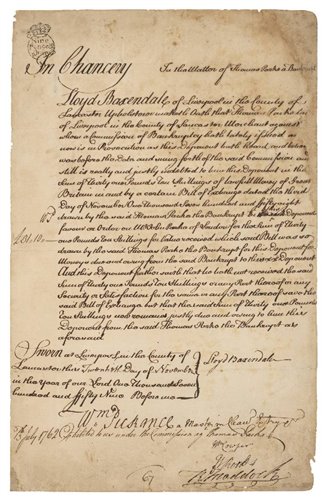 In Chancery
In the Matter of Thomas Parke a Bankrupt
Lloyd Baxendale of Liverpool in the County of
Lancaster Upholsterer maketh Oath that Thomas Parke
of Liverpool in the County of Lancaster Merchant against
whom a Commission of Bankruptcy hath lately issued as
now is in Prosecution as this Deponent hath heard and
was before the Date and suing forth of the said Commission and
still is really and justly indebted to him this Deponent in the
Sum of thirty one Pounds Ten Shillings of lawfull Money of Great
Britain in and by a certain Bill of Exchange dated the third
day of November One thousand seven hundred and fifty eight
drawn by the said Thomas Parke the Bankrupt to this Deponent
or Order on Mr John Parke of London for the Sum of thirty
one Pounds Ten Shillings for value received which said Bill was so
drawn by the said Thomas Parke the Bankrupt for
Moneys due and owing from the said Bankrupt to this Deponent
And this Deponent further saith that he hath not received the said
Sum of thirty one Pounds Ten Shillings or any Part thereof or any
Security or Satisfaction for the same or any Part thereof save the
said Bill of Exchange but that the said Sum of thirty one Pounds
Ten Shillings now remains justly due and owing to him this
Deponent from the said Thomas Parke the Bankrupt as
aforesaid
Sworn at Liverpool in the County of
Lancaster this Day of November
in the Year of our Lord One Thousand Seven
hundred and fifty Nine Before me
Lloyd Baxendale
a Master in Chancery
July 1762 Exhibited to us under the Commission against Thomas Parke